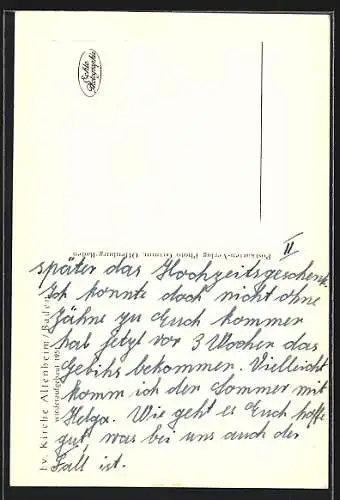 Echte Photographie
II
Postkarten-Verlag Photo Grimm, Offenburg-Baden
später das Hochzeitsgeschenk.
Ich konnte doch nicht ohne
Zähne zu Euch kommen
hab jetzt vor 3 Wochen das
Gebihs bekommen. Vielleicht
komm ich den Sommer mit
Helga. Wie geht es Euch hoffe
gut, was bei uns auch der
Fall ist.
Ev. Kirche Altenheim/Baden
wiederaufgebaut 1951